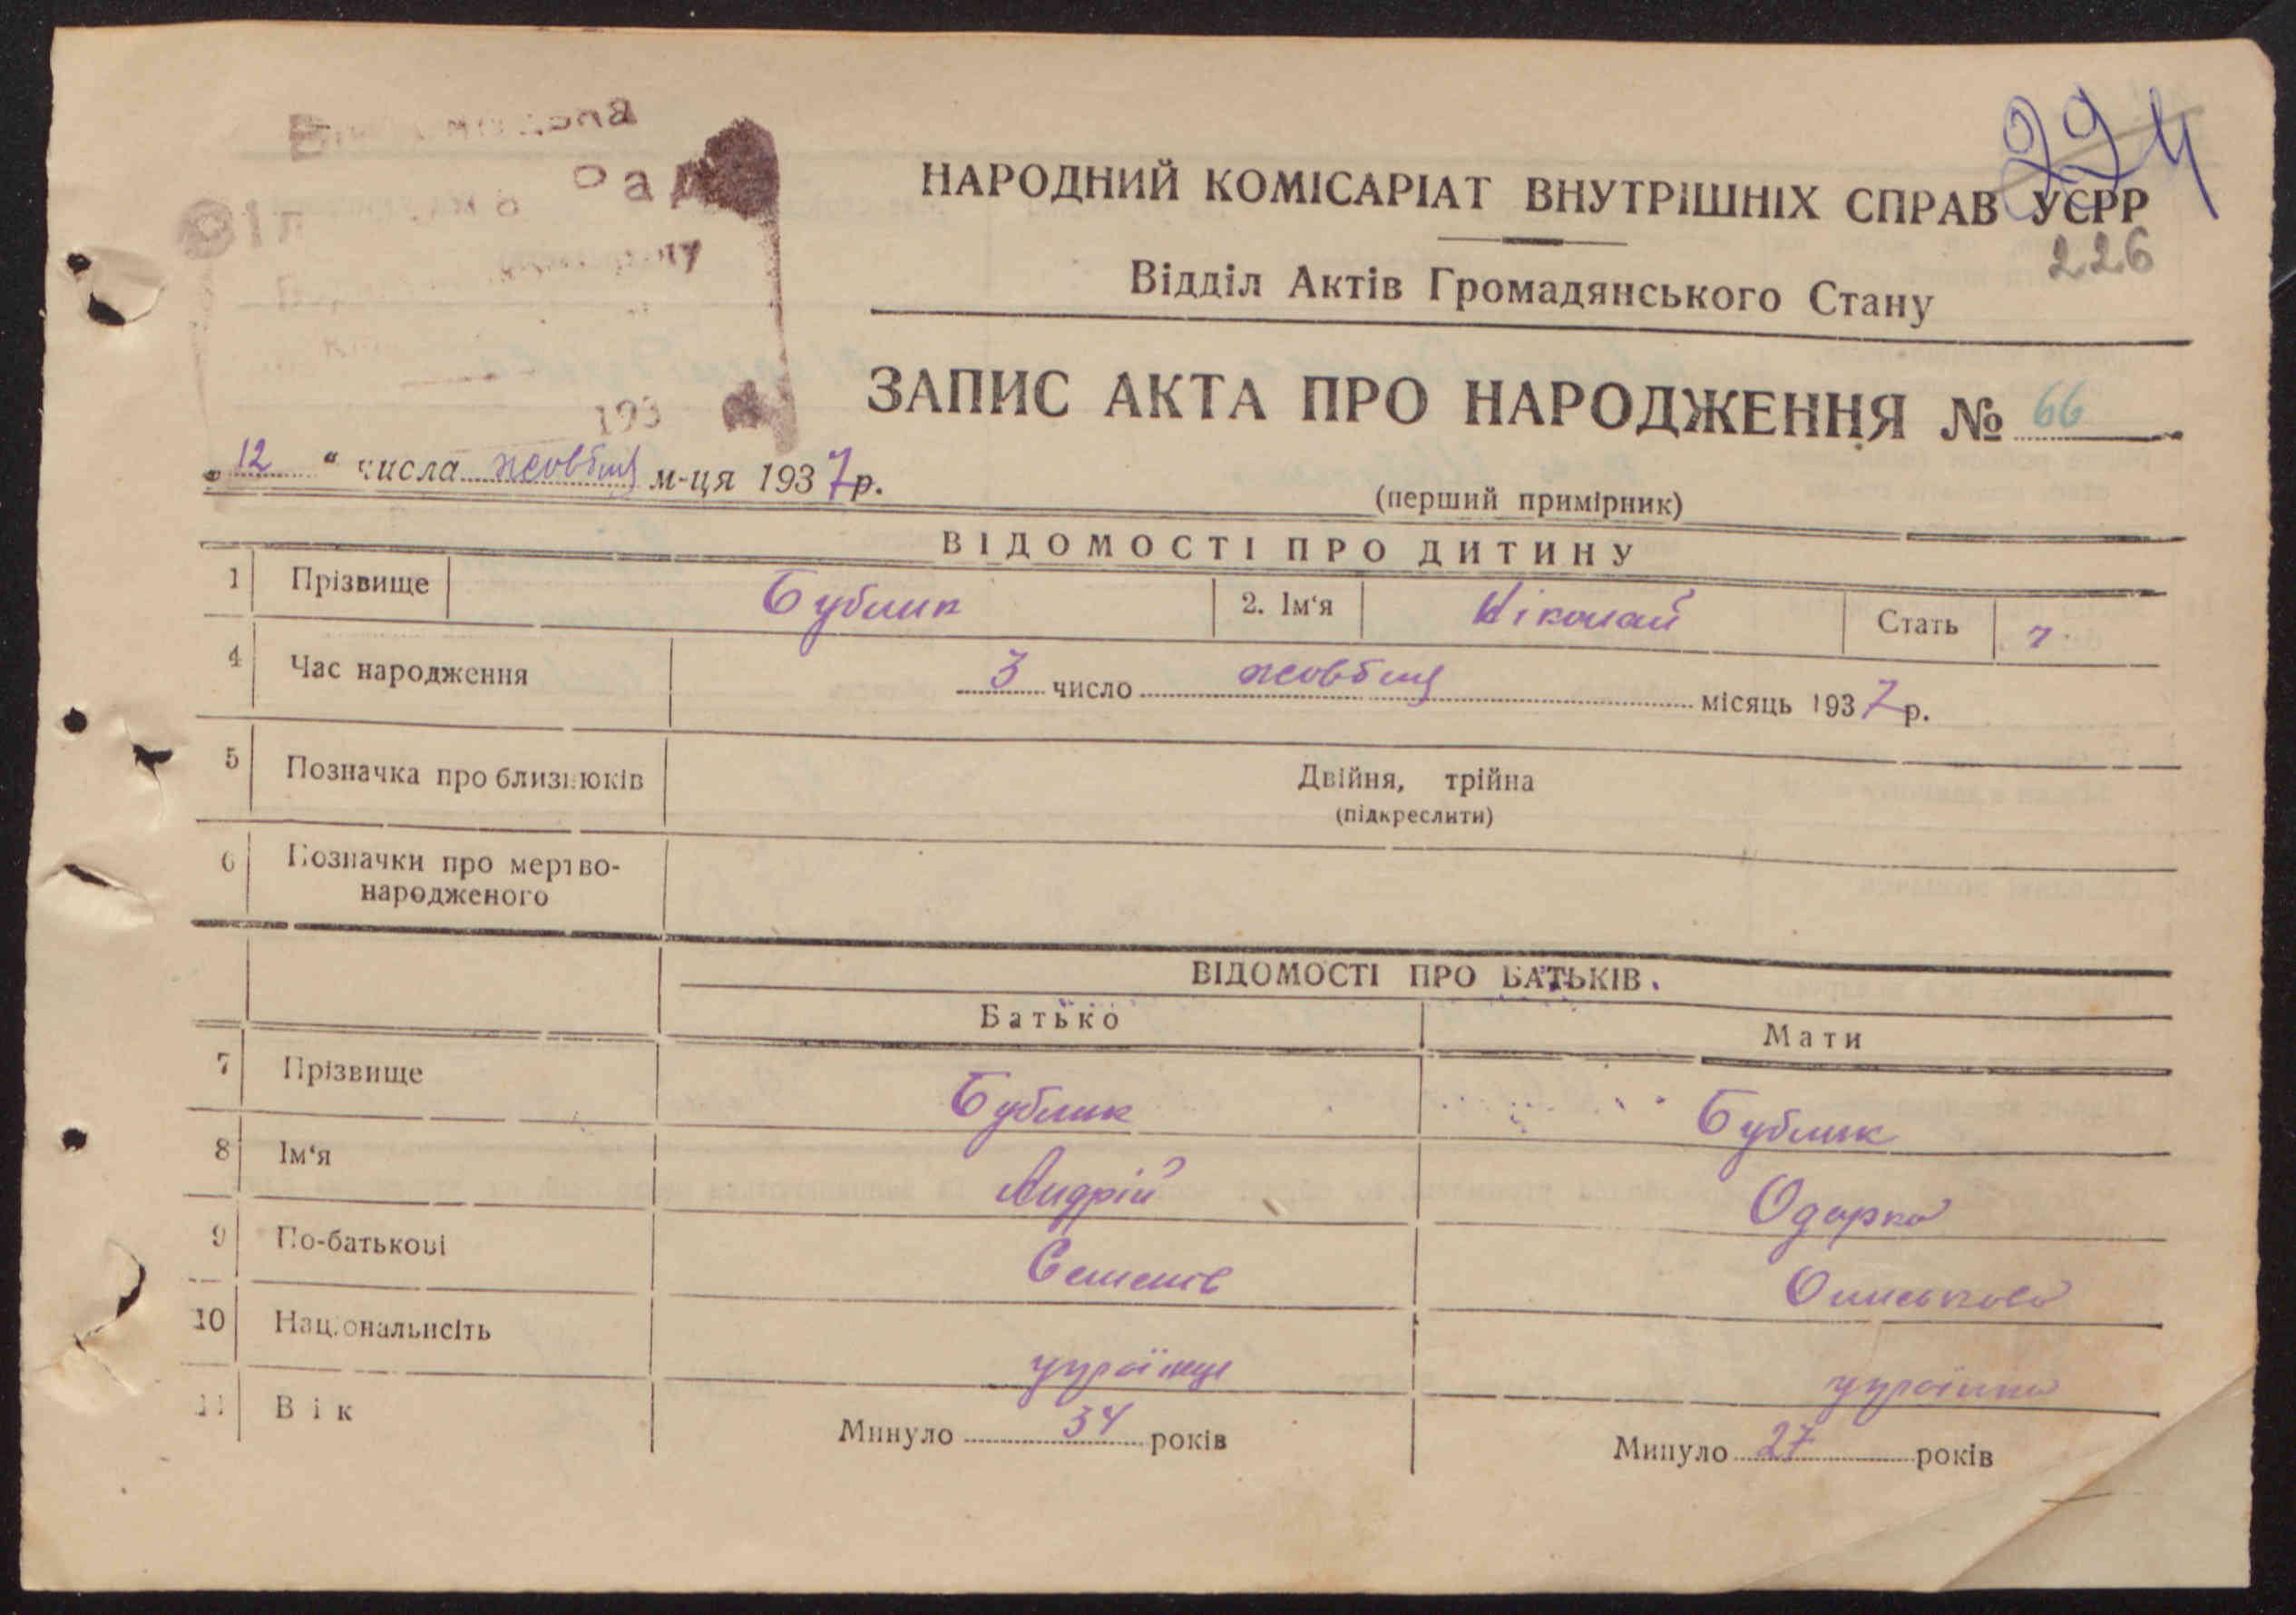 294
НАРОДНИЙ КОМІСАРІАТ ВНУТРІШНІХ СПРАВ УСРР
226
Відділ Актів Громадянського Стану
ЗАПИС АКТА ПРО НАРОДЖЕННЯ № 66
193
„ 12 " числа жовтня м-ця 1937 р.
(перший примірник)
ВІДОМОСТІ ПРО ДИТИНУ
1 Прізвище Бублик 2. Ім‘я Ніколай Стать ч
4 Час народження 3 число жовтня місяць 1937 р.
5 Позначка про близнюків Двійня, трійна
(підкреслити)
6 Позначки про мертво-
народженого
ВІДОМОСТІ ПРО БАТЬКІВ.
Батько Мати
7 Прізвище Бублик Бублик
8 Ім‘я Андрій Одарка
9 По-батькові Семенів
10 Національнсіть українець українка
11 Вік Минуло 34 років Минуло 27 років